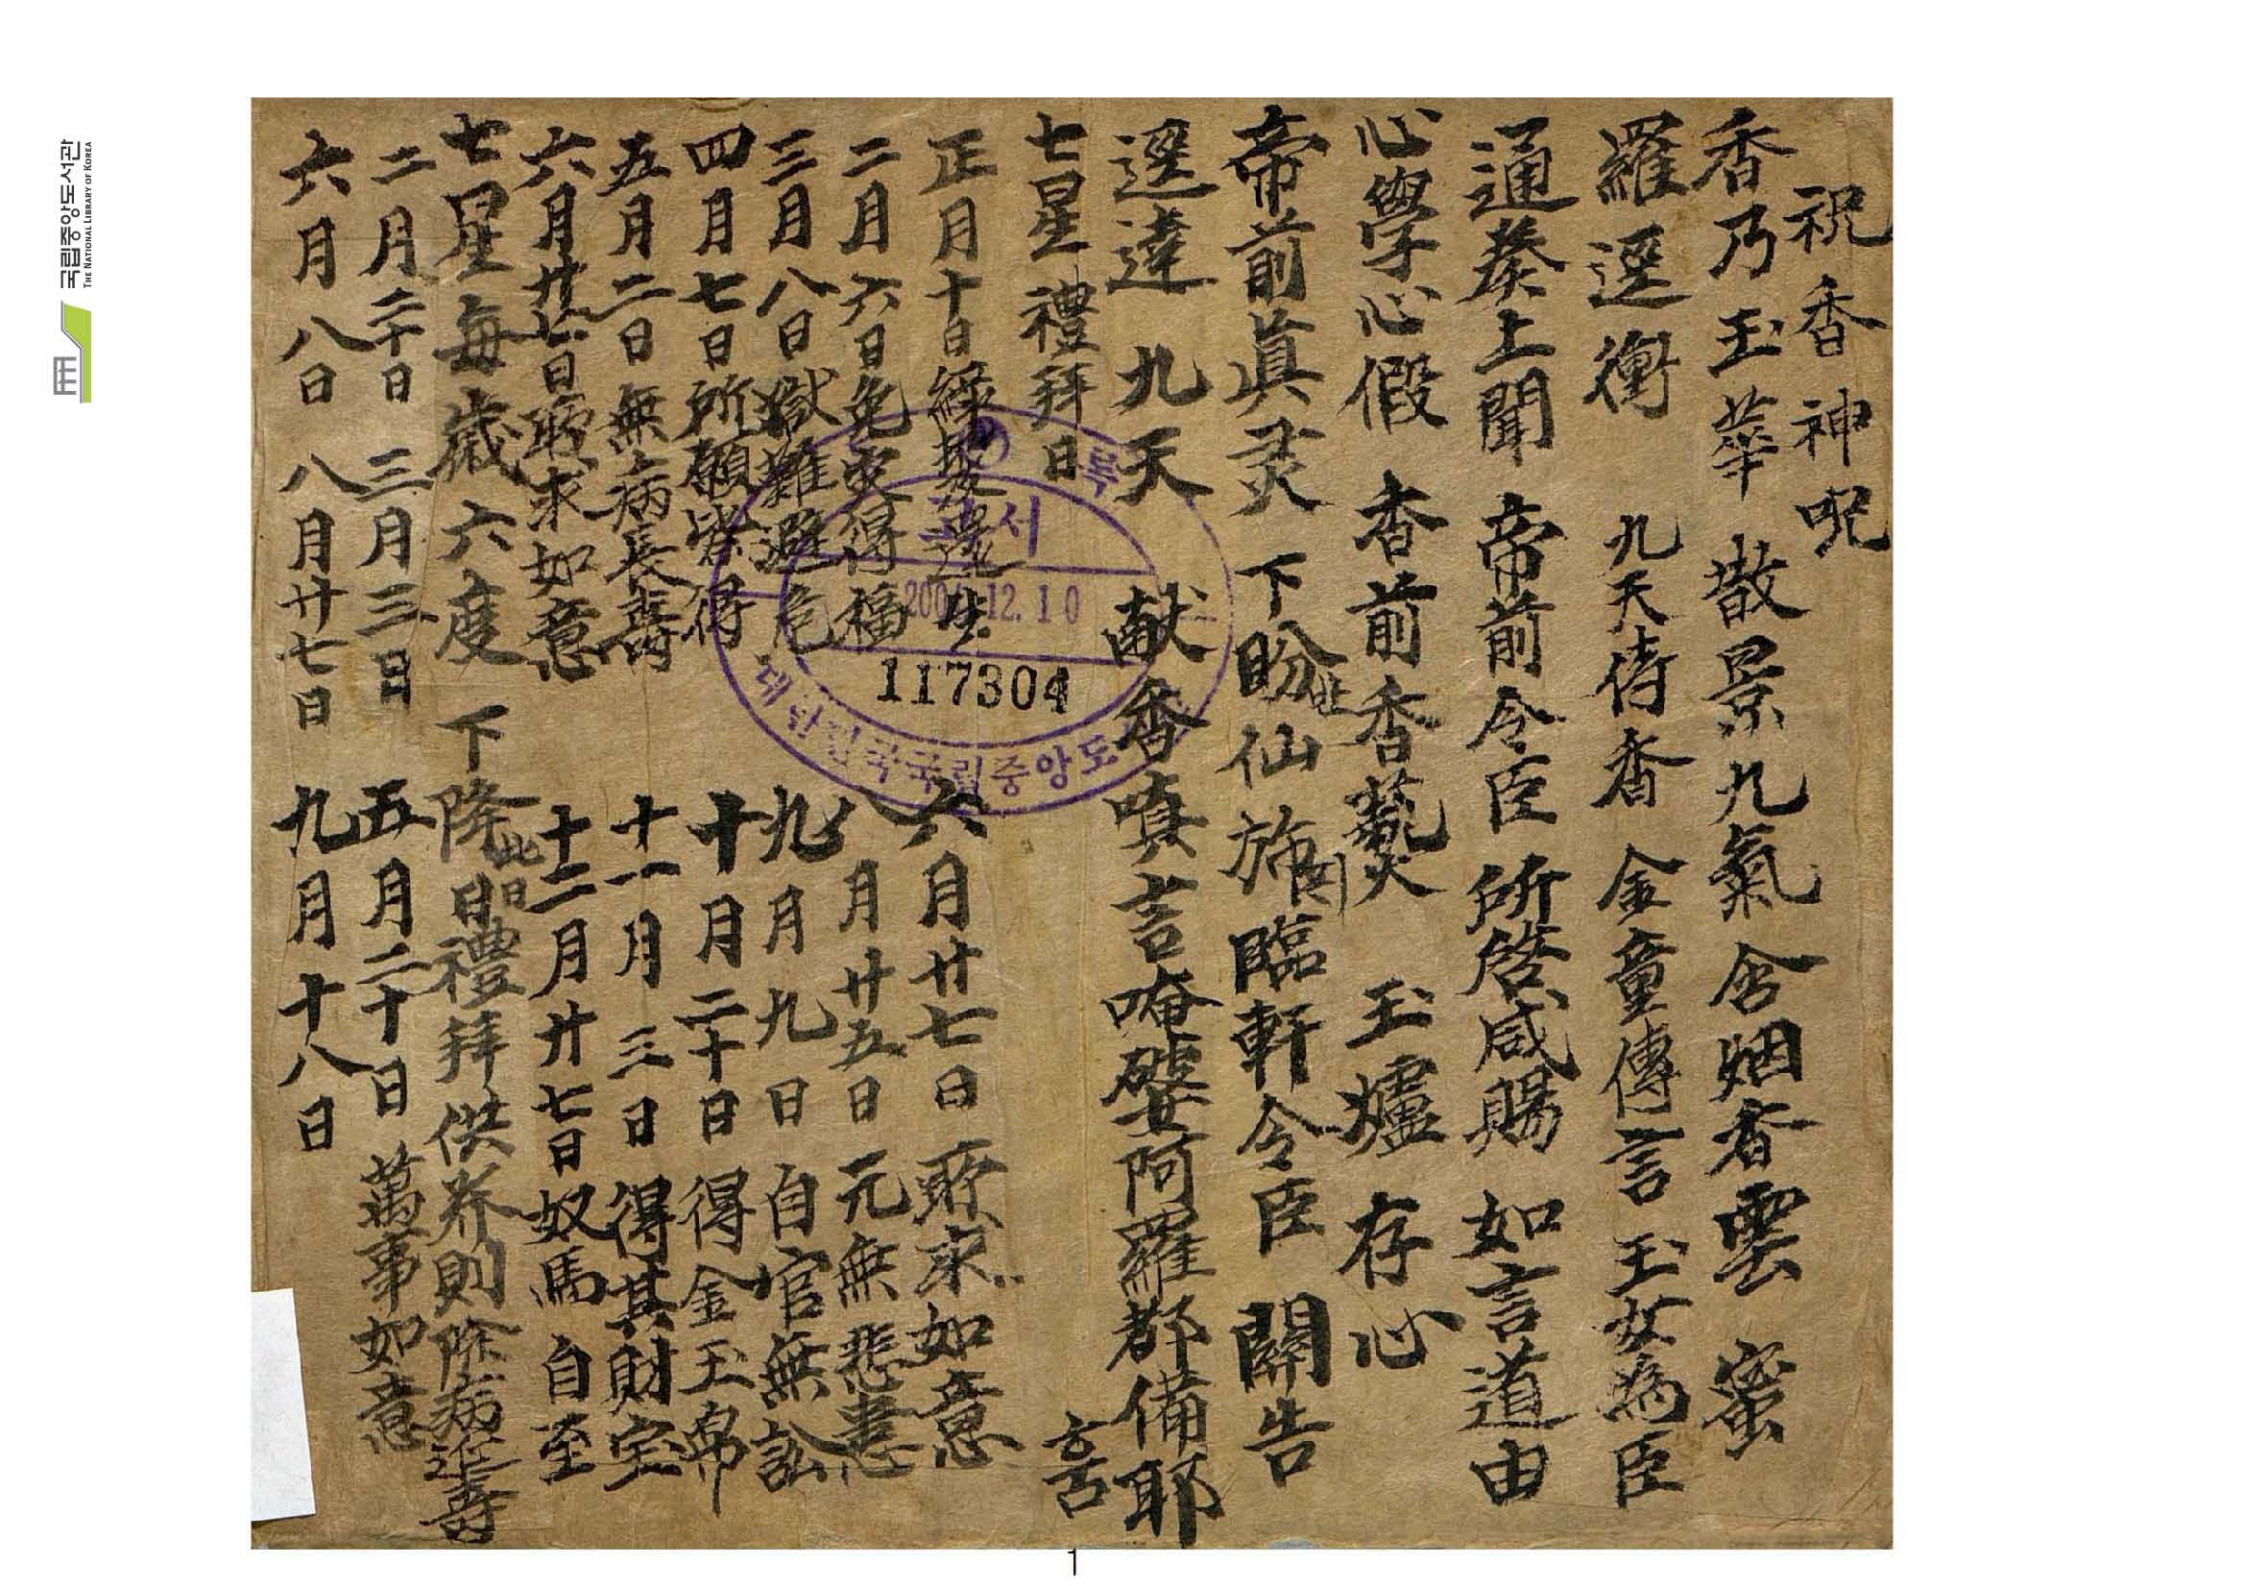 祝香神呪
香乃玉華 散景九氣 含烟香雲 蜜
羅逕衝 九天侍香 金童傳言 玉女為臣
通奏上聞 帝前令臣 所啓咸賜 如言道由
心學心假 香前香爇火 玉爐 存心
帝前眞灵 下盼仙旆 臨軒令臣 關告
逕達 九天 献香嗔言唵 阿羅都備耶
七星禮拜日
正月十日 生
二月六日免 得福
三月八日獄難避危
四月七日所願皆得
五月二日無病長壽
六月廿 日 求如意
六月廿七日 求如意
八月廿五日 元無悲患
九月九日 自官無訟
十月二十日 得金玉帛
十一月三日 得其財宝
十二月廿七日 奴馬自至
七星每歲六度 下降此日日禮拜供养則除病 壽
二月二十日 三月三日 五月二十日 萬事如意
六月八日 八月廿七日 九月十八日
고서
12.10
117304
대한민국국립중앙도
국립중앙도서관
THE NATIONAL LIBRARY OF KOREA
1